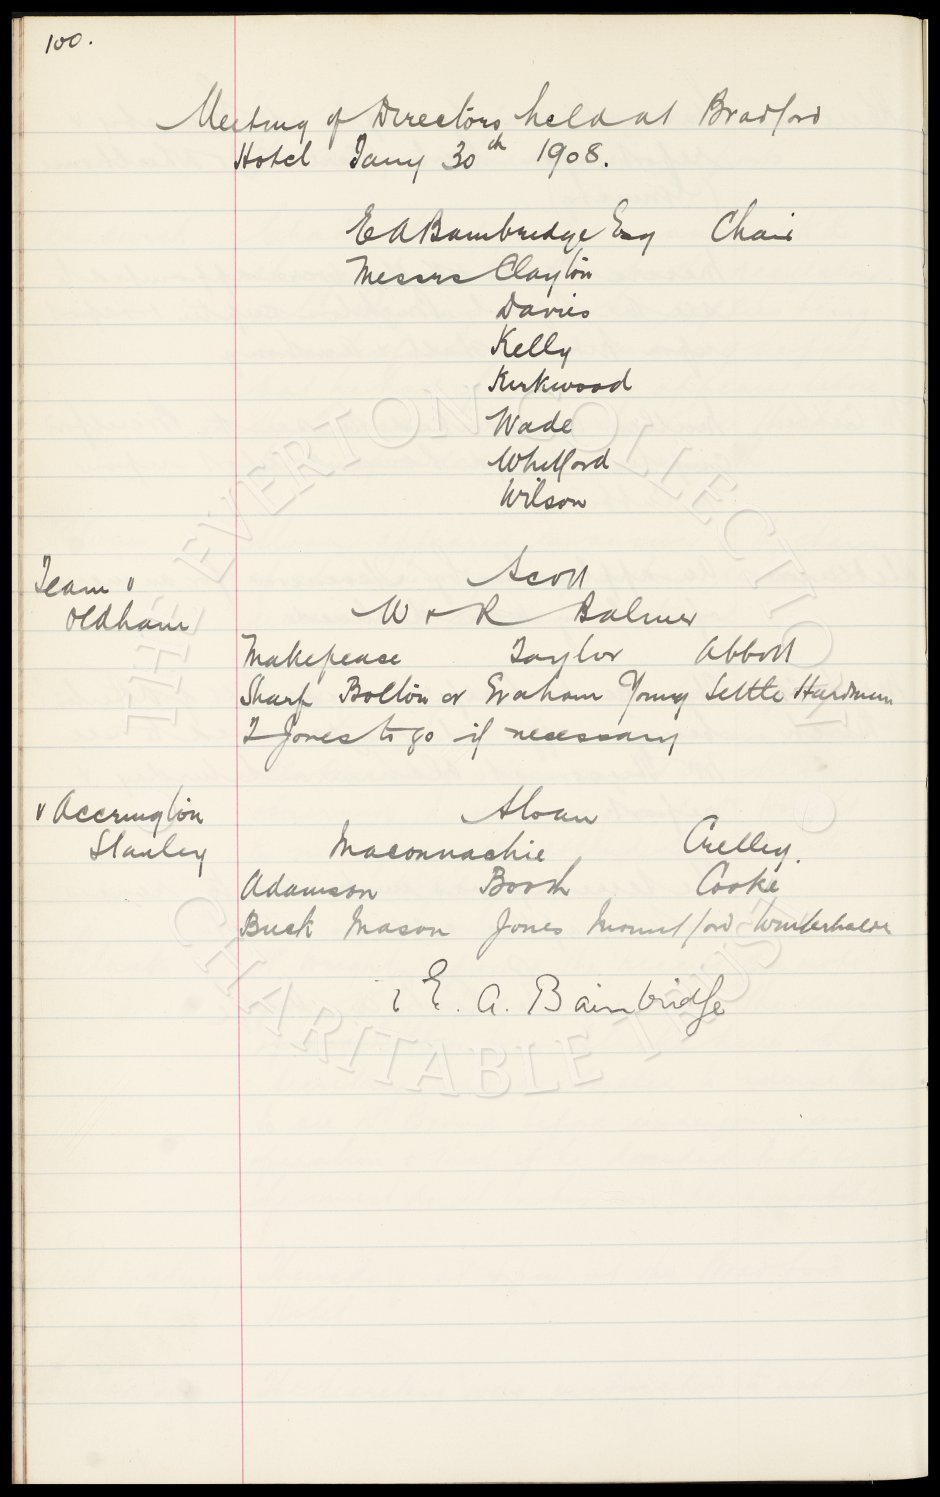 100.
Meeting of Directors held at Bradford
Hotel Jany 30th 1908.
E A Bainbridge Esq Chair
Messrs Clayton
Davies
Kelly
Kirkwood
Wade
Whitford
Wilson
Team v
Oldham
Scott
W & R Balmer
Makepeace Taylor Abbott
Sharp Bolton or Graham Young Settle Hardman
T Jones to go if necessary
v Accrington
Stanley
Sloan
Maconnachie Crelley.
Adamson Booth Cooke
Buck Mason Jones Mountford Winterhalder
E. A. Bainbridge
THE EVERTON COLLECTION
CHARITABLE TRUST